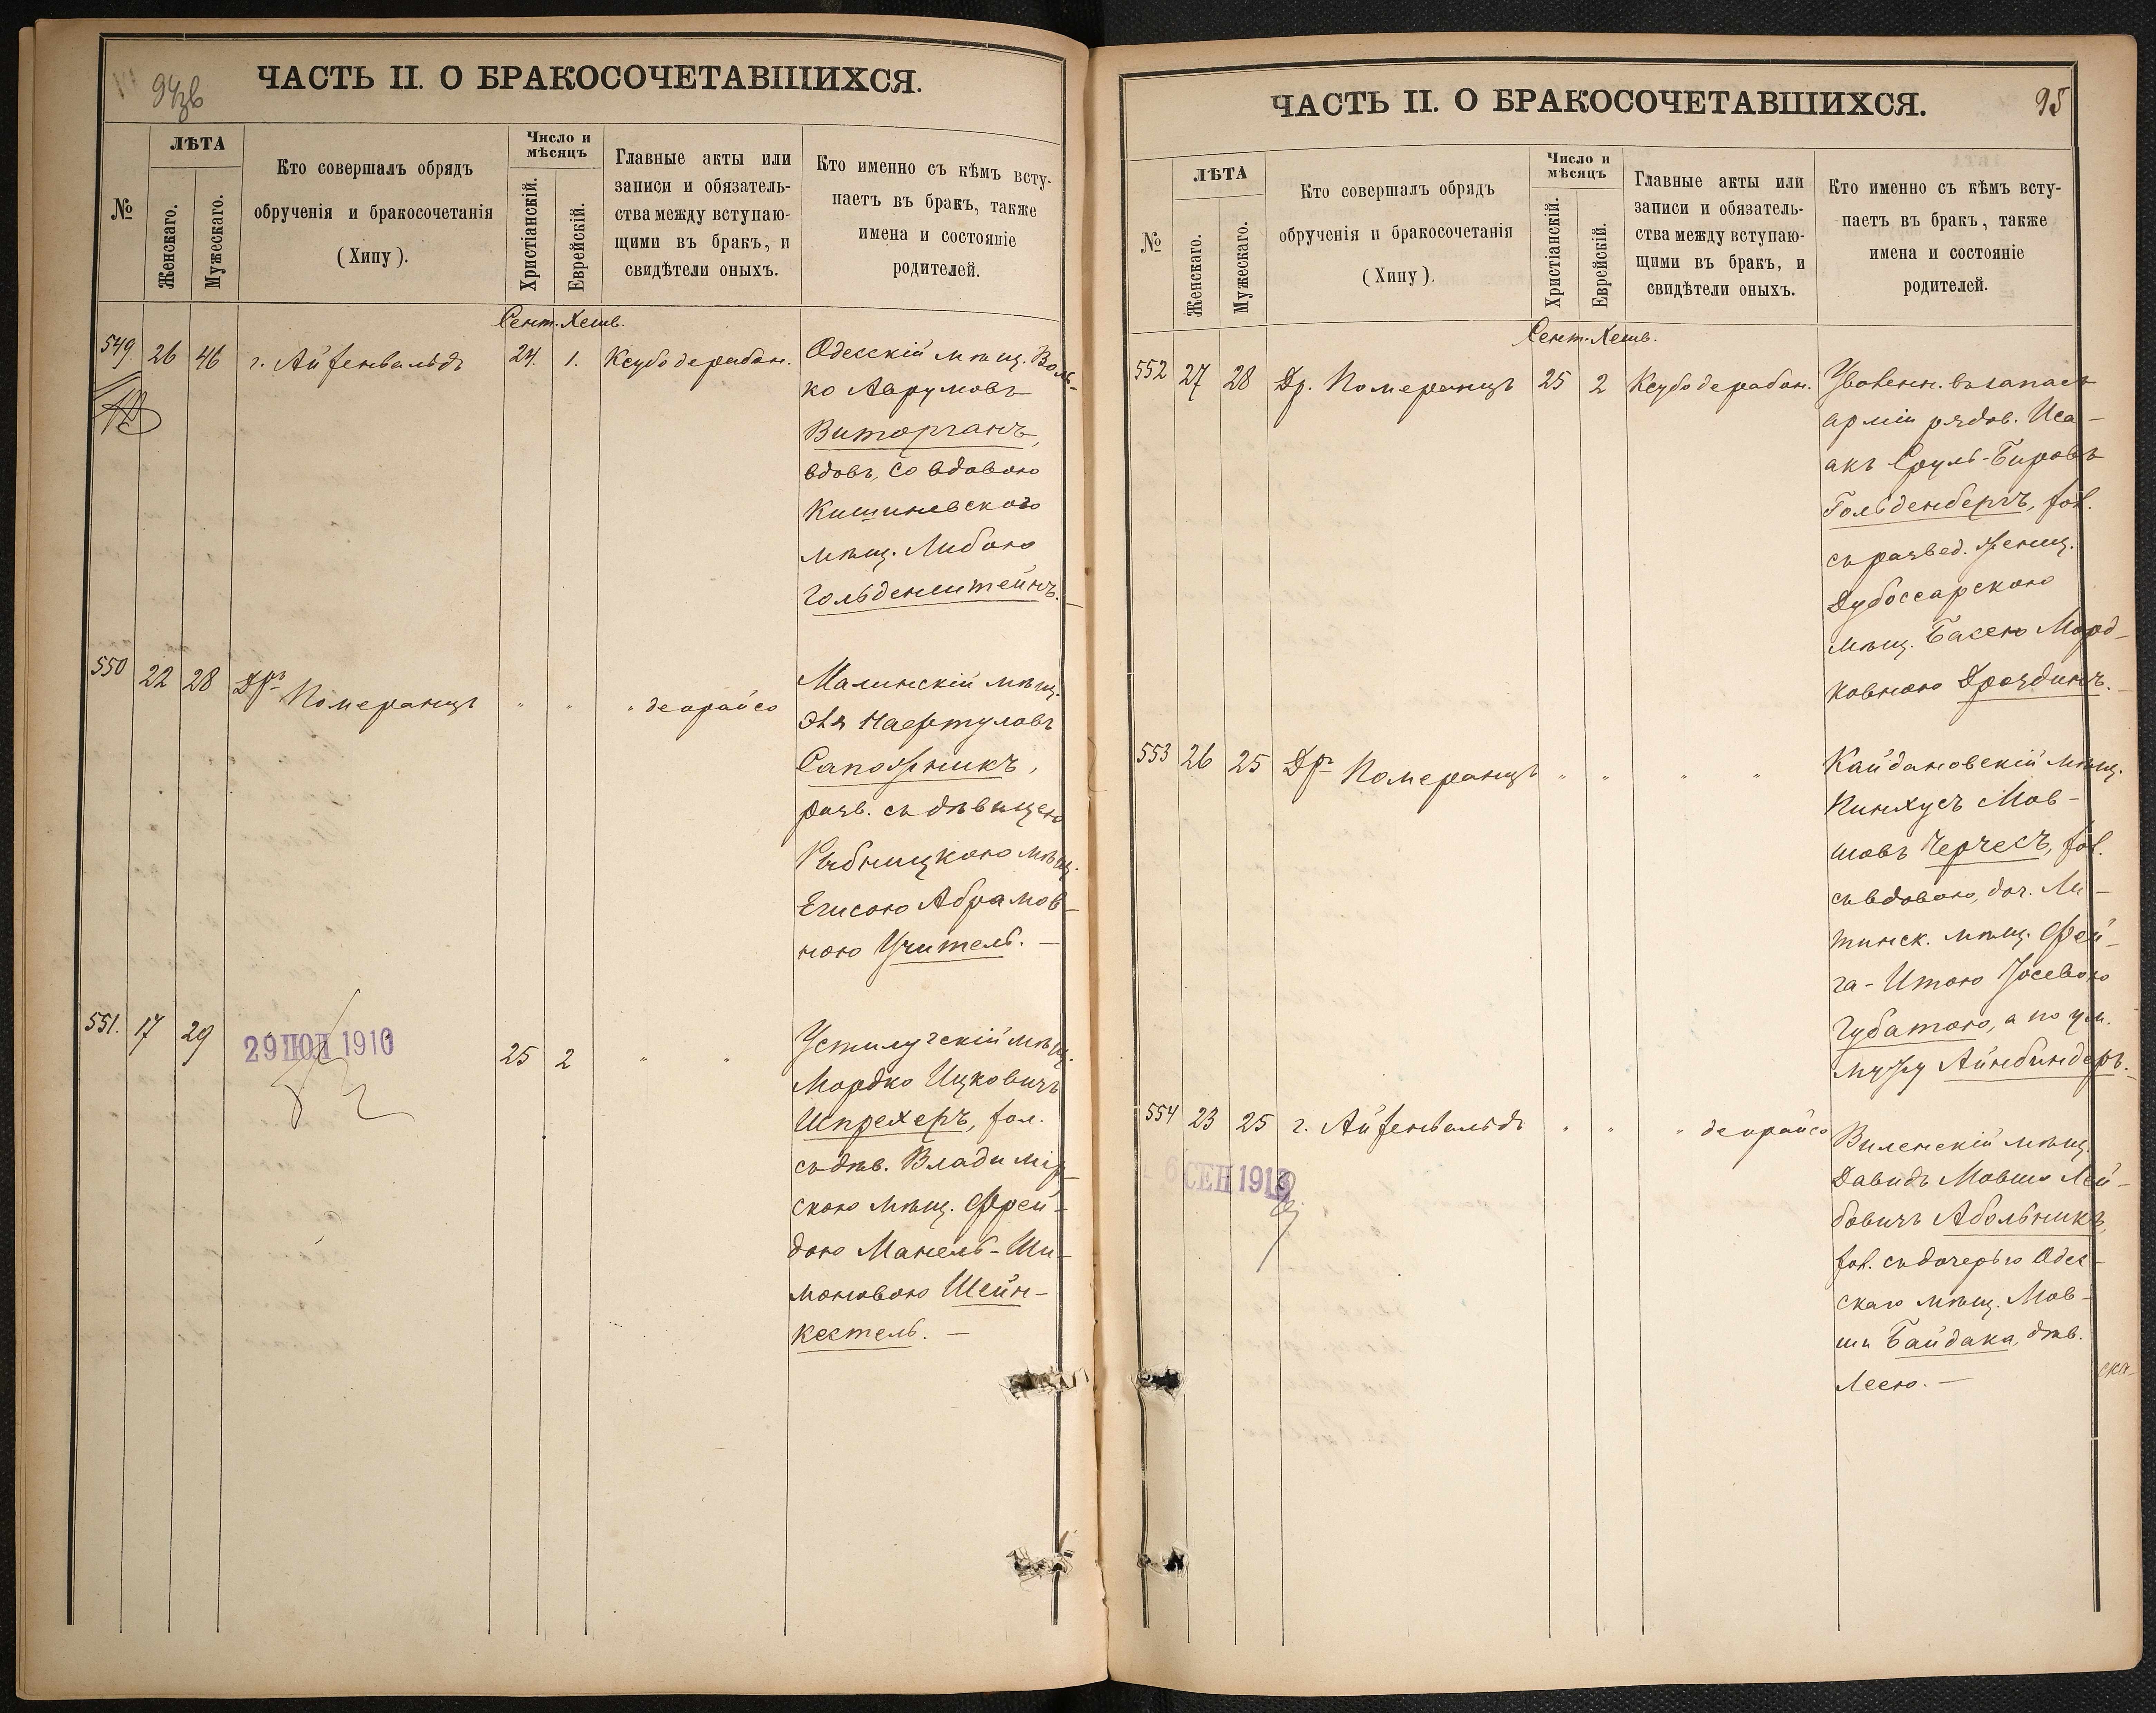 94зв
ЧАСТЬ II. О БРАКОСОЧЕТАВШИХСЯ.
№
ЛѢТА
Женскаго.
Мужескаго.
Кто совершалъ обрядъ
обрученія и бракосочетанія
(Хипу).
Число и
мѣсяцъ
Христіанскій.
Еврейскій.
Главные акты или
записи и обязатель-
ства между вступаю-
щими въ бракъ, и
свидѣтели оныхъ.
Кто именно съ кѣмъ всту-
паетъ въ бракъ, также
имена и состояніе
родителей.
Сент. Хешв.
549 26 46 г. Айзенвальдъ 24. 1. Ксубо дерабан.
Одесскій мѣщ. Воль-
ко Аврумовъ
Виторганъ,
вдовъ, со вдовою
Кишиневскою
мѣщ. Либою
Гольденштейнъ. —
550 22 28 Дръ Померанцъ " " " деорайсо
Малинскій мѣщ.
Эля Нафтуловъ
Сапожникъ,
разв. съ дѣвицею
Рыбницкою мѣщ.
Абрамов-
ною Учитель. —
551. 17 29 25 2 " "
29 ІЮЛ 1910
Устилугскій мѣщ.
Мордко Ицковичъ
Шпрехеръ, хол.
съ дѣв. Владимір-
скою мѣщ. Фрей-
дою Манель-Ши-
моновою Шейн-
кестель. —
95
ЧАСТЬ II. О БРАКОСОЧЕТАВШИХСЯ.
№
ЛѢТА
Женскаго.
Мужескаго.
Кто совершалъ обрядъ
обрученія и бракосочетанія
(Хипу).
Число и
мѣсяцъ
Христіанскій.
Еврейскій.
Главные акты или
записи и обязатель-
ства между вступаю-
щими въ бракъ, и
свидѣтели оныхъ.
Кто именно съ кѣмъ всту-
паетъ въ бракъ, также
имена и состояніе
родителей.
Сент. Хешв.
552 27 28 Др. Померанцъ 25 2 Ксубо дерабан.
Уволенн. въ запасъ
арміи рядов. Иса-
акъ Сруль-Бировъ
Гольденбергъ, хол.
съ развед. женщ.
Дубоссарскою
мѣщ. Басею Морд-
ковною Дроздинъ. —
553 26 25 Дръ Померанцъ " " " "
Кайдановскій мѣщ.
Пинхусъ Мов-
шовъ Черчесъ, хол.
съ вдовою, доч. Ли-
тинск. мѣщ. Фей-
га-Итою Іосевою
Губатою, а по ум.
мужу Айнбиндеръ. —
554 23 25 г. Айзенвальдъ " " " деорайсо
6 СЕН 1913
Виленскій мѣщ.
Давидъ Мовша Лей-
бовичъ Абольникъ,
хол. съ дочерью Одес-
скаго мѣщ. Мов-
ши Байдака, дѣв.
Леею. —
ска-